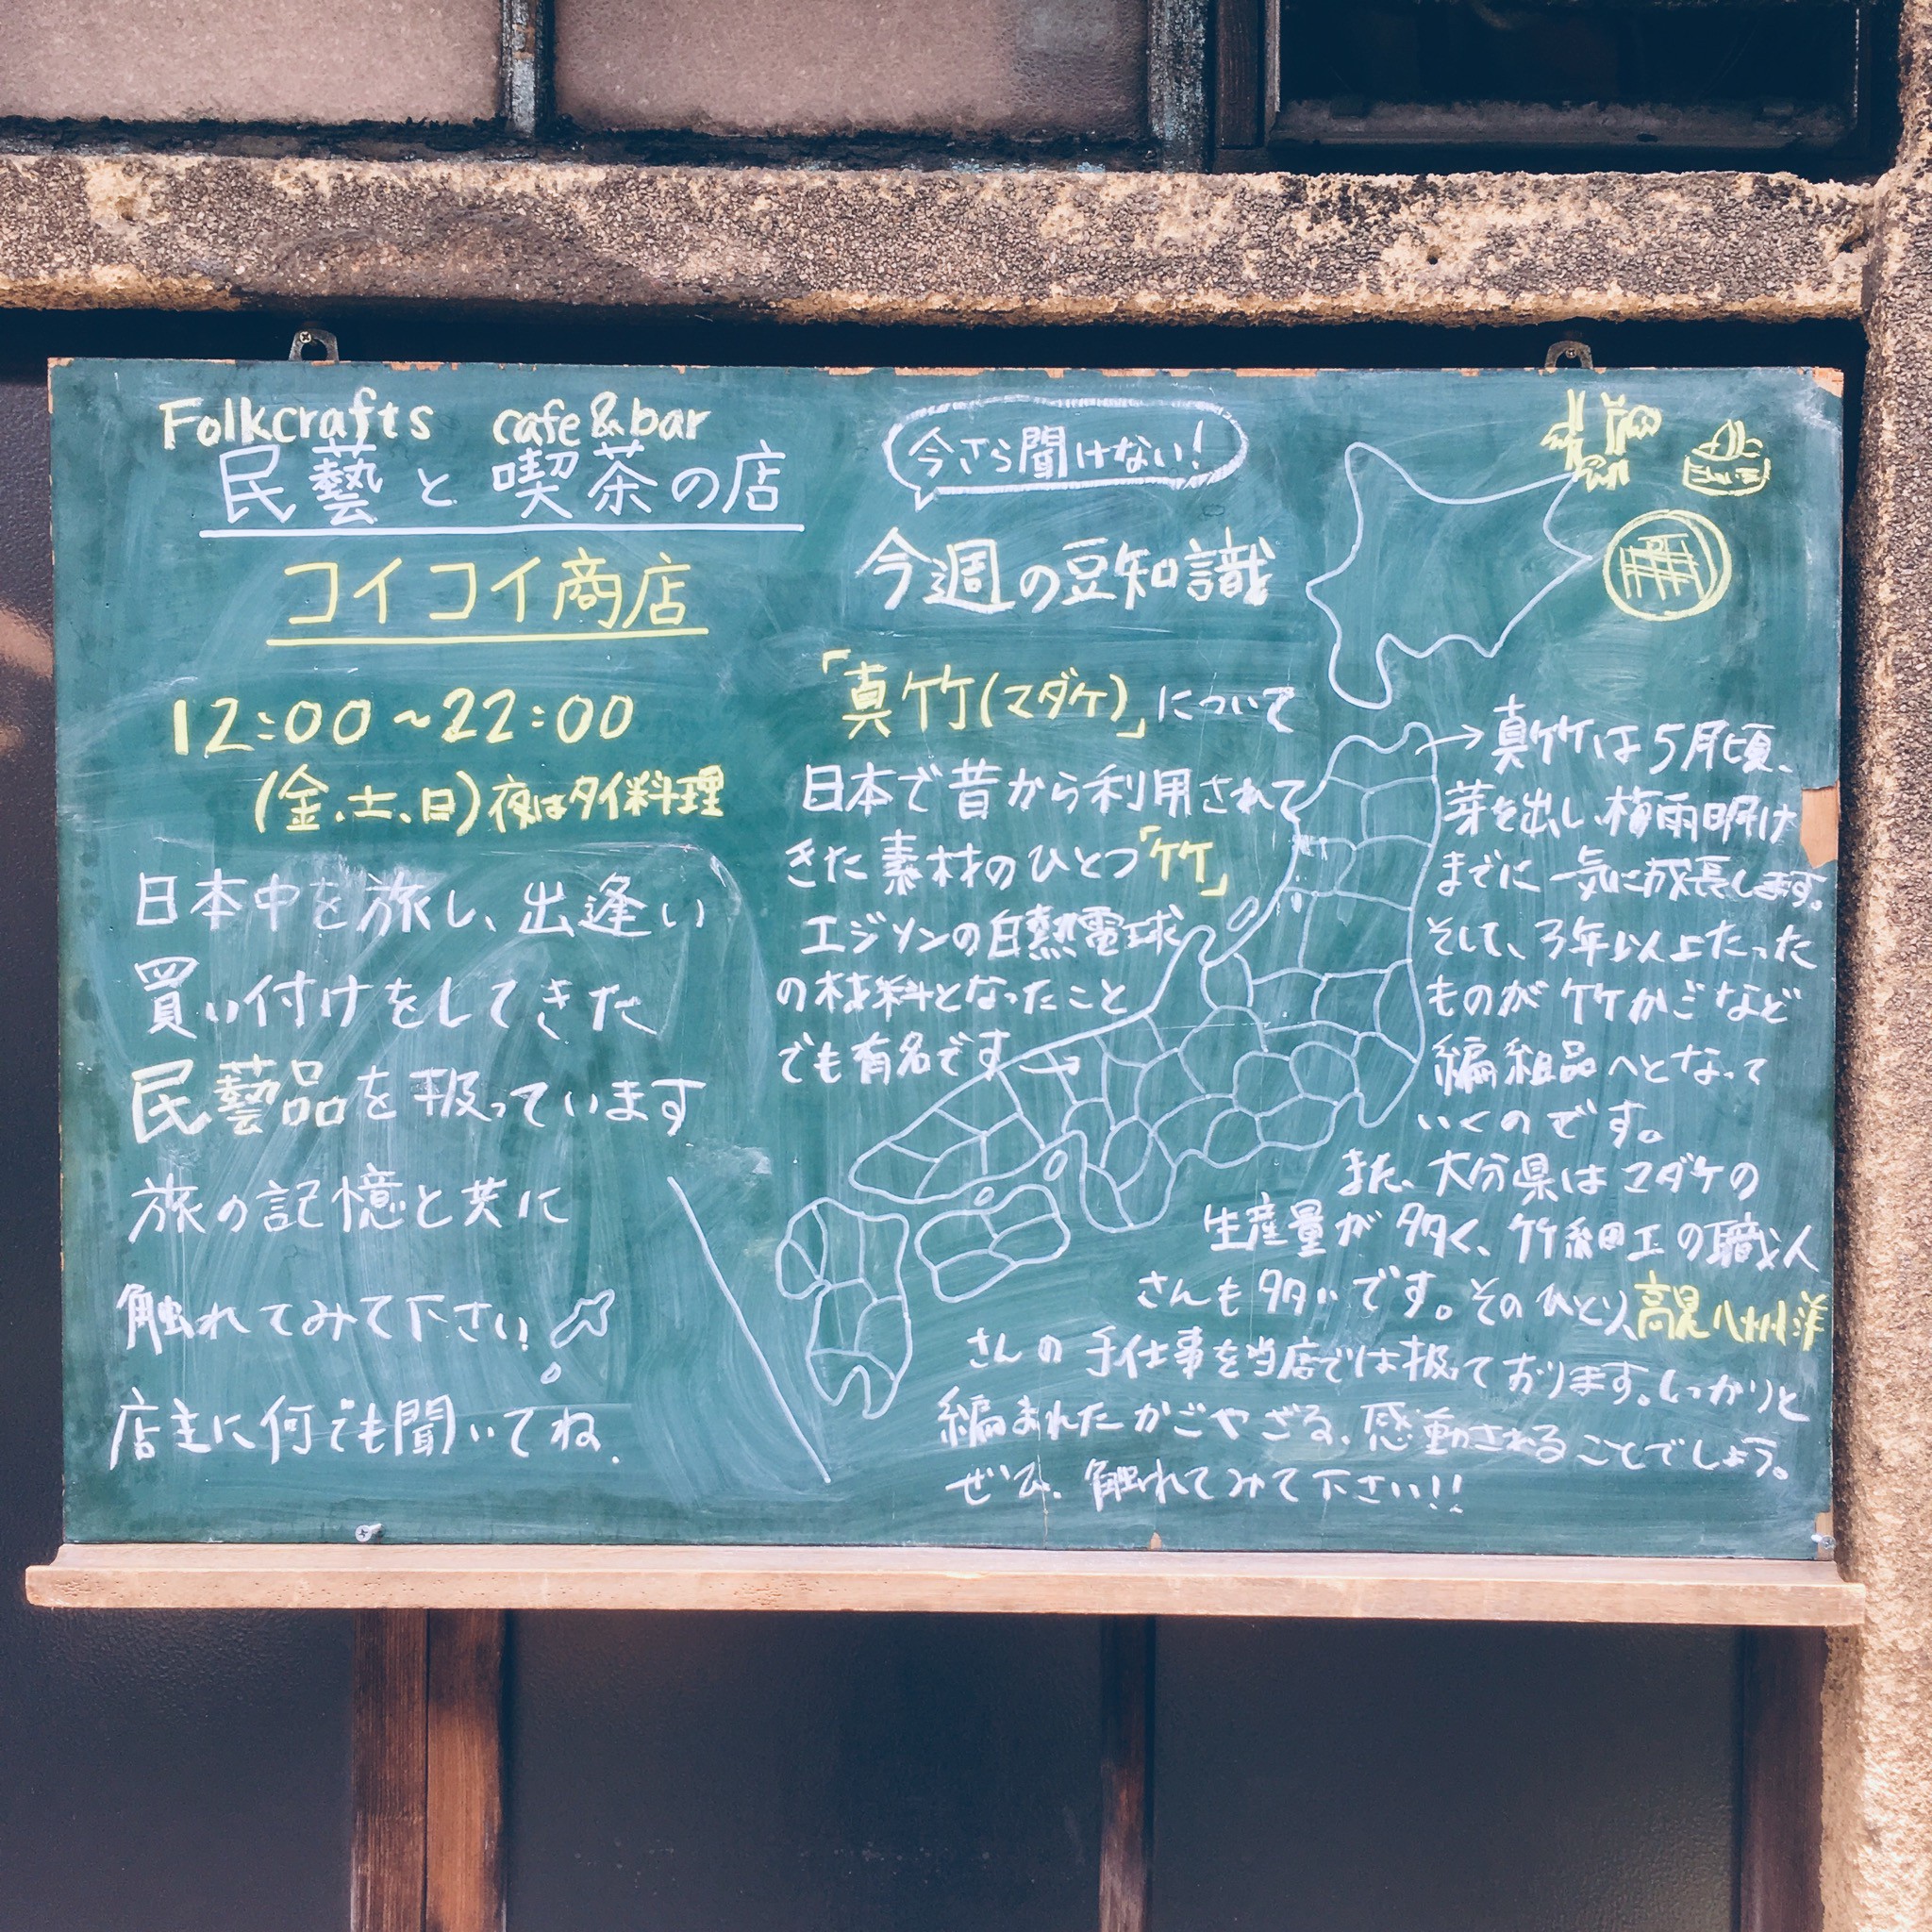 Folkcrafts cafe&bar
民藝と喫茶の店
コイコイ商店
12:00~22:00
(金、土、日)夜はタイ料理
日本中を旅し、出逢い
買い付けをしてきた
民藝品を扱っています
旅の記憶と共に
触れてみて下さい!
店主に何でも聞いてね.
今さら聞けない!
今週の豆知識
「真竹(マダケ)」について
日本で昔から利用されて
きた素材のひとつ「竹」
エジソンの白熱電球
の材料となったこと
でも有名です
→真竹は5月頃、
芽を出し、梅雨明け
までに一気に成長します。
そして、3年以上たった
ものが竹かごなど
編組品へとなって
いくのです。
また、大分県はマダケの
生産量が多く、竹細工の職人
さんも多いです。そのひとり、高見八州洋
さんの手仕事を当店では扱っております。しっかりと
編まれたかごやざる、感動されることでしょう。
ぜひ、触れてみて下さい!!